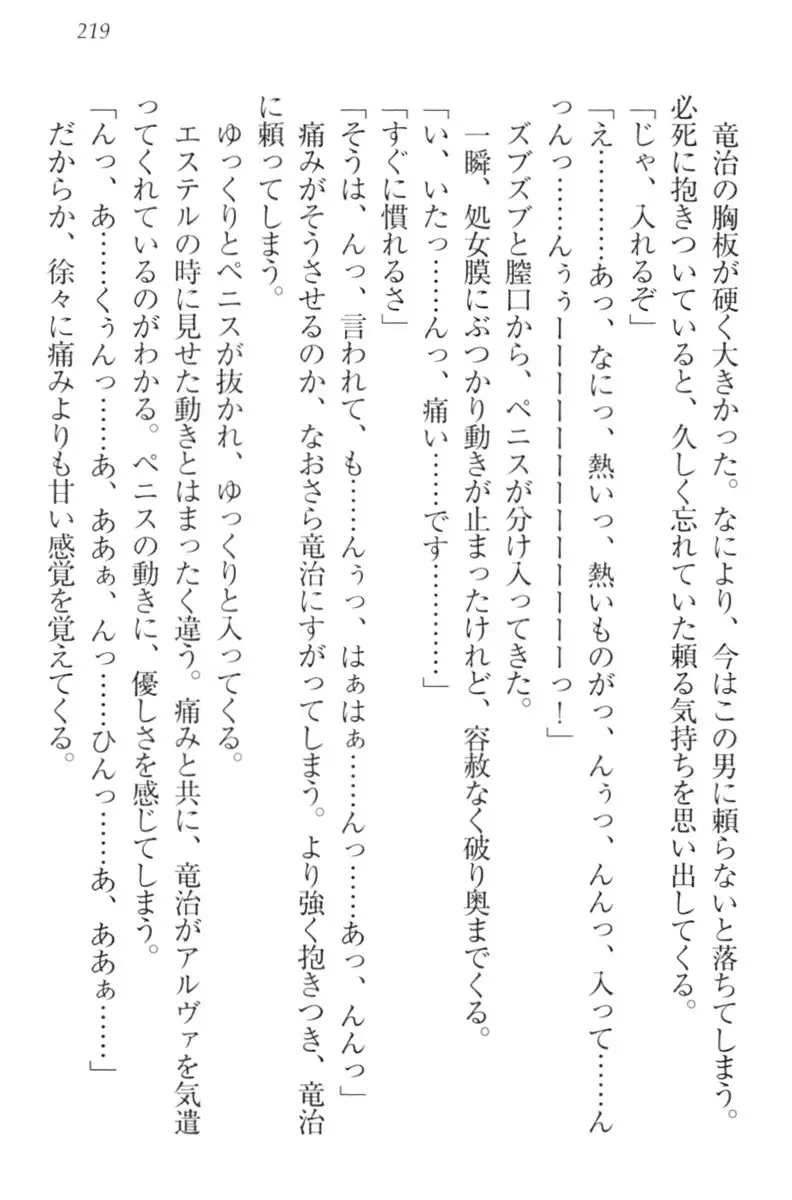 219
竜治の胸板が硬く大きかった。なにより、今はこの男に頼らないと落ちてしまう。
必死に抱きついていると、久しく忘れていた頼る気持ちを思い出してくる。
「じゃ、入れるぞ」
「え…………あっ、なにっ、熱いっ、熱いものがっ、んぅっ、んんっ、入って……ん
っんっ……んぅぅーーーーーーーーーーーーっ！」
ズブズブと膣口から、ペニスが分け入ってきた。
一瞬、処女膜にぶつかり動きが止まったけれど、容赦なく破り奥までくる。
「い、いたっ……んっ、痛い……です…………」
「すぐに慣れるさ」
「そうは、んっ、言われて、も……んぅっ、はぁはぁ……んっ……あっ、んんっ」
痛みがそうさせるのか、なおさら竜治にすがってしまう。より強く抱きつき、竜治
に頼ってしまう。
ゆっくりとペニスが抜かれ、ゆっくりと入ってくる。
エステルの時に見せた動きとはまったく違う。痛みと共に、竜治がアルヴァを気遣
ってくれているのがわかる。ペニスの動きに、優しさを感じてしまう。
「んっ、あ……くぅんっ……あ、ああぁ、んっ……ひんっ……あ、ああぁ……」
だからか、徐々に痛みよりも甘い感覚を覚えてくる。